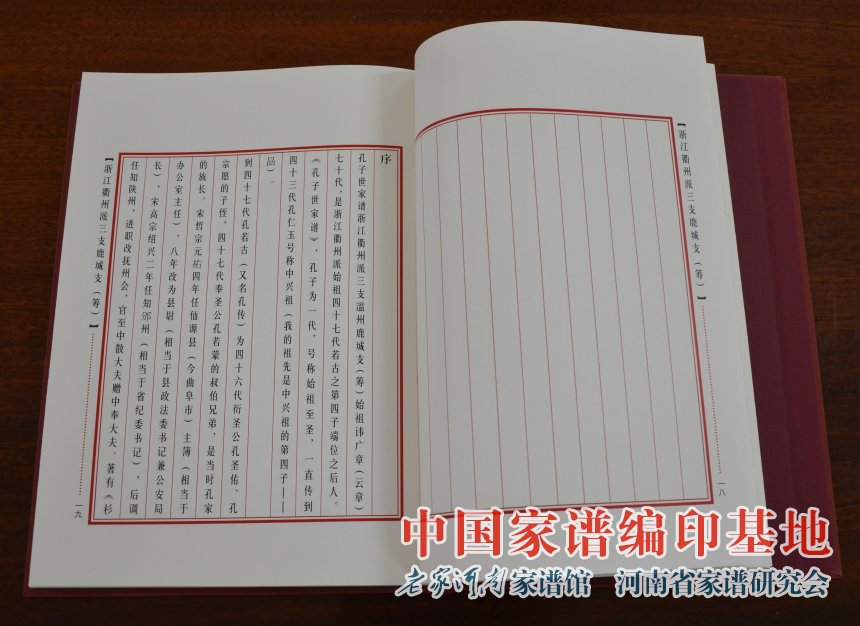 【浙江衢州派三支鹿城支（筹）】
一八
序
孔子世家谱浙江衢州派三支温州鹿城支（筹）始祖讳广章（云章）
七十代，是浙江衢州派始祖四十七代若古之第四子端位之后人。
《孔子世家谱》，孔子为一代，号称始祖至圣，一直传到
四十三代孔仁玉号称中兴祖（我的祖先是中兴祖的第四子——
勗）。
到四十七代孔若古（又名孔传）为四十六代衍圣公孔圣佑、孔
宗愿的子侄，四十七代奉圣公孔若蒙的叔伯兄弟，是当时孔家
的族长。宋哲宗元祐四年任仙源县（今曲阜市）主簿（相当于
办公室主任），八年改为县尉（相当于县政法委书记兼公安局
长），宋高宗绍兴二年任知邠州（相当于省纪委书记），后调
任知陕州，进职改抚州会，官至中散大夫赠中奉大夫。著有《杉
【浙江衢州派三支鹿城支（筹）】
一九
中国家谱编印基地
老家河南家谱馆 河南省家谱研究会